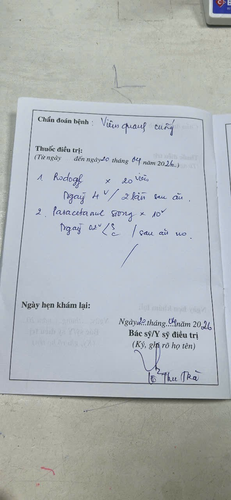 Chẩn đoán bệnh : Viêm quanh cuống
Thuốc điều trị:
(Từ ngày đến ngày 20 tháng 04 năm 2026.)
1 Rodogyl x 20 viên
Ngày 4v / 2 lần sau ăn.
2. Paracetamol 500mg x 10v
Ngày 02v / S C / sau ăn no.
Ngày hẹn khám lại:
Ngày 20 tháng 04 năm 2026
Bác sỹ/Y sỹ điều trị
(Ký, ghi rõ họ tên)
Thu Trà